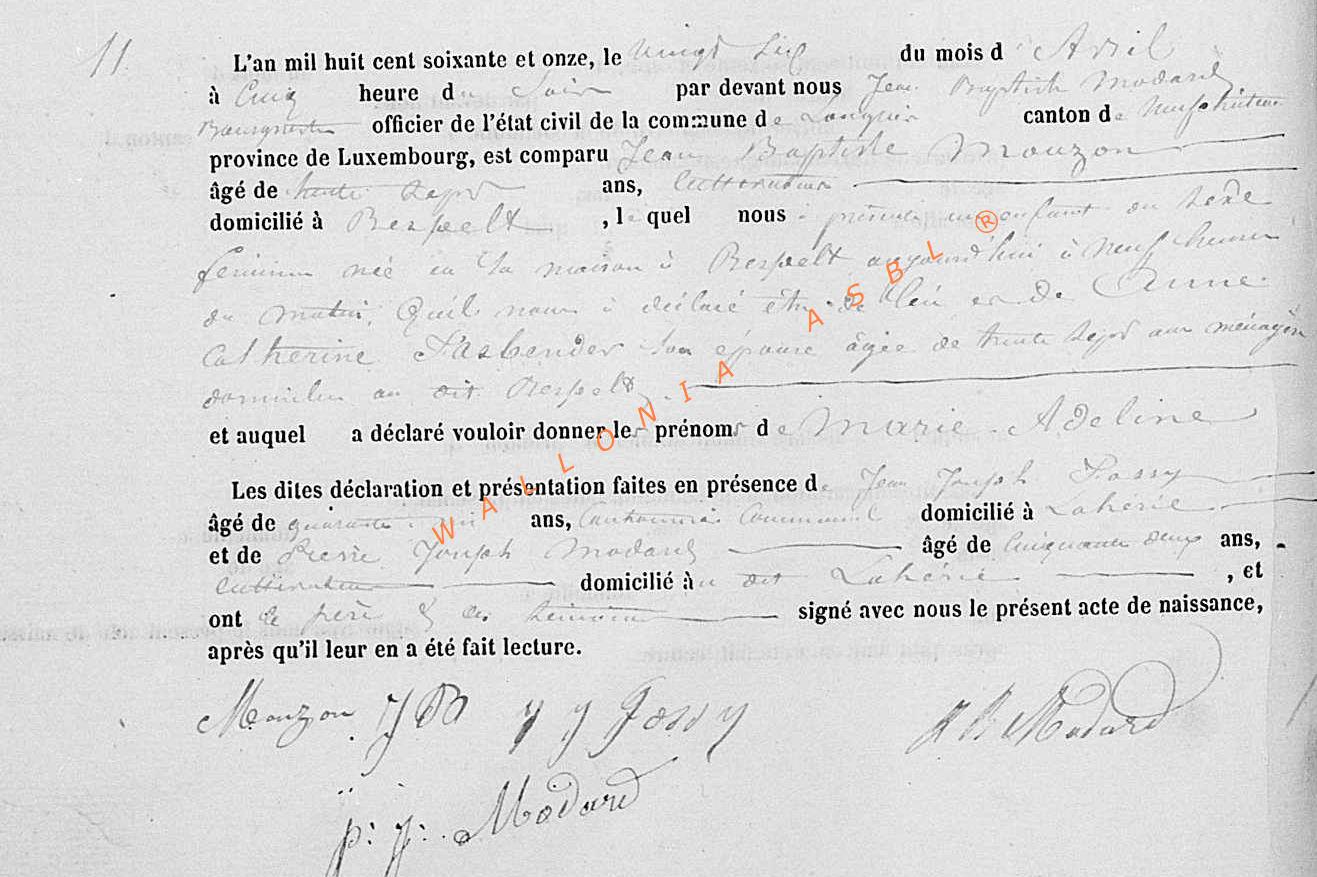 11
L'an mil huit cent soixante et onze, le vingt six du mois d'Avril
à Cinq heure du Soir par devant nous Jean Baptiste Modard
Bourgmestre officier de l'état civil de la commune de Longlier canton de Neufchâteau
province de Luxembourg, est comparu Jean Baptiste Mouzon
âgé de trente sept ans, Cultivateur
domicilié à Respelt, lequel nous à présenté un enfant du sexe
feminin née en sa maison à Respelt aujourd'hui à neuf heures
du matin, Qu'il nous à déclaré être de lui et de Anne
Catherine Fasbender son épouse âgée de trente sept ans ménagère
domiciliée au dit Respelt
et auquel a déclaré vouloir donner les prénoms de Marie Adeline
Les dites déclaration et présentation faites en présence de Jean Joseph
âgé de quarante ans, Cantonnier Communal domicilié à Lahérie
et de Pierre Joseph Modard âgé de Cinquante deux ans,
Cultivateur domicilié au dit Lahérie, et
ont le père & les témoins signé avec nous le présent acte de naissance,
après qu'il leur en a été fait lecture.
Mouzon J B J J Jossy J B Modard
p: j: Modard
WALLONIA ASBL ®